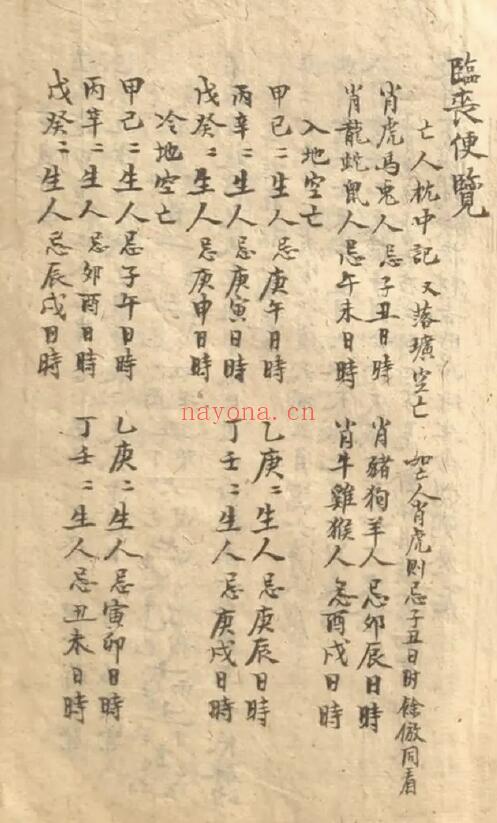 臨喪便覽
亡人杭中記 又落壙空亡 如亡人肖虎則忌子丑日时餘倣同看
肖虎馬兔人忌子丑日時 肖豬狗羊人忌卯辰日時
肖龍蛇鼠人忌午未日時 肖牛雞猴人忌酉戌日時
入地空亡
甲己二生人忌庚午日時 乙庚二生人忌庚辰日時
丙辛二生人忌庚寅日時 丁壬二生人忌庚戌日時
戊癸二生人忌庚申日時
冷地空亡
甲己二生人忌子午日時 乙庚二生人忌寅卯日時
丙辛二生人忌卯酉日時 丁壬二生人忌丑未日時
戊癸二生人忌辰戌日時
nayona.cn